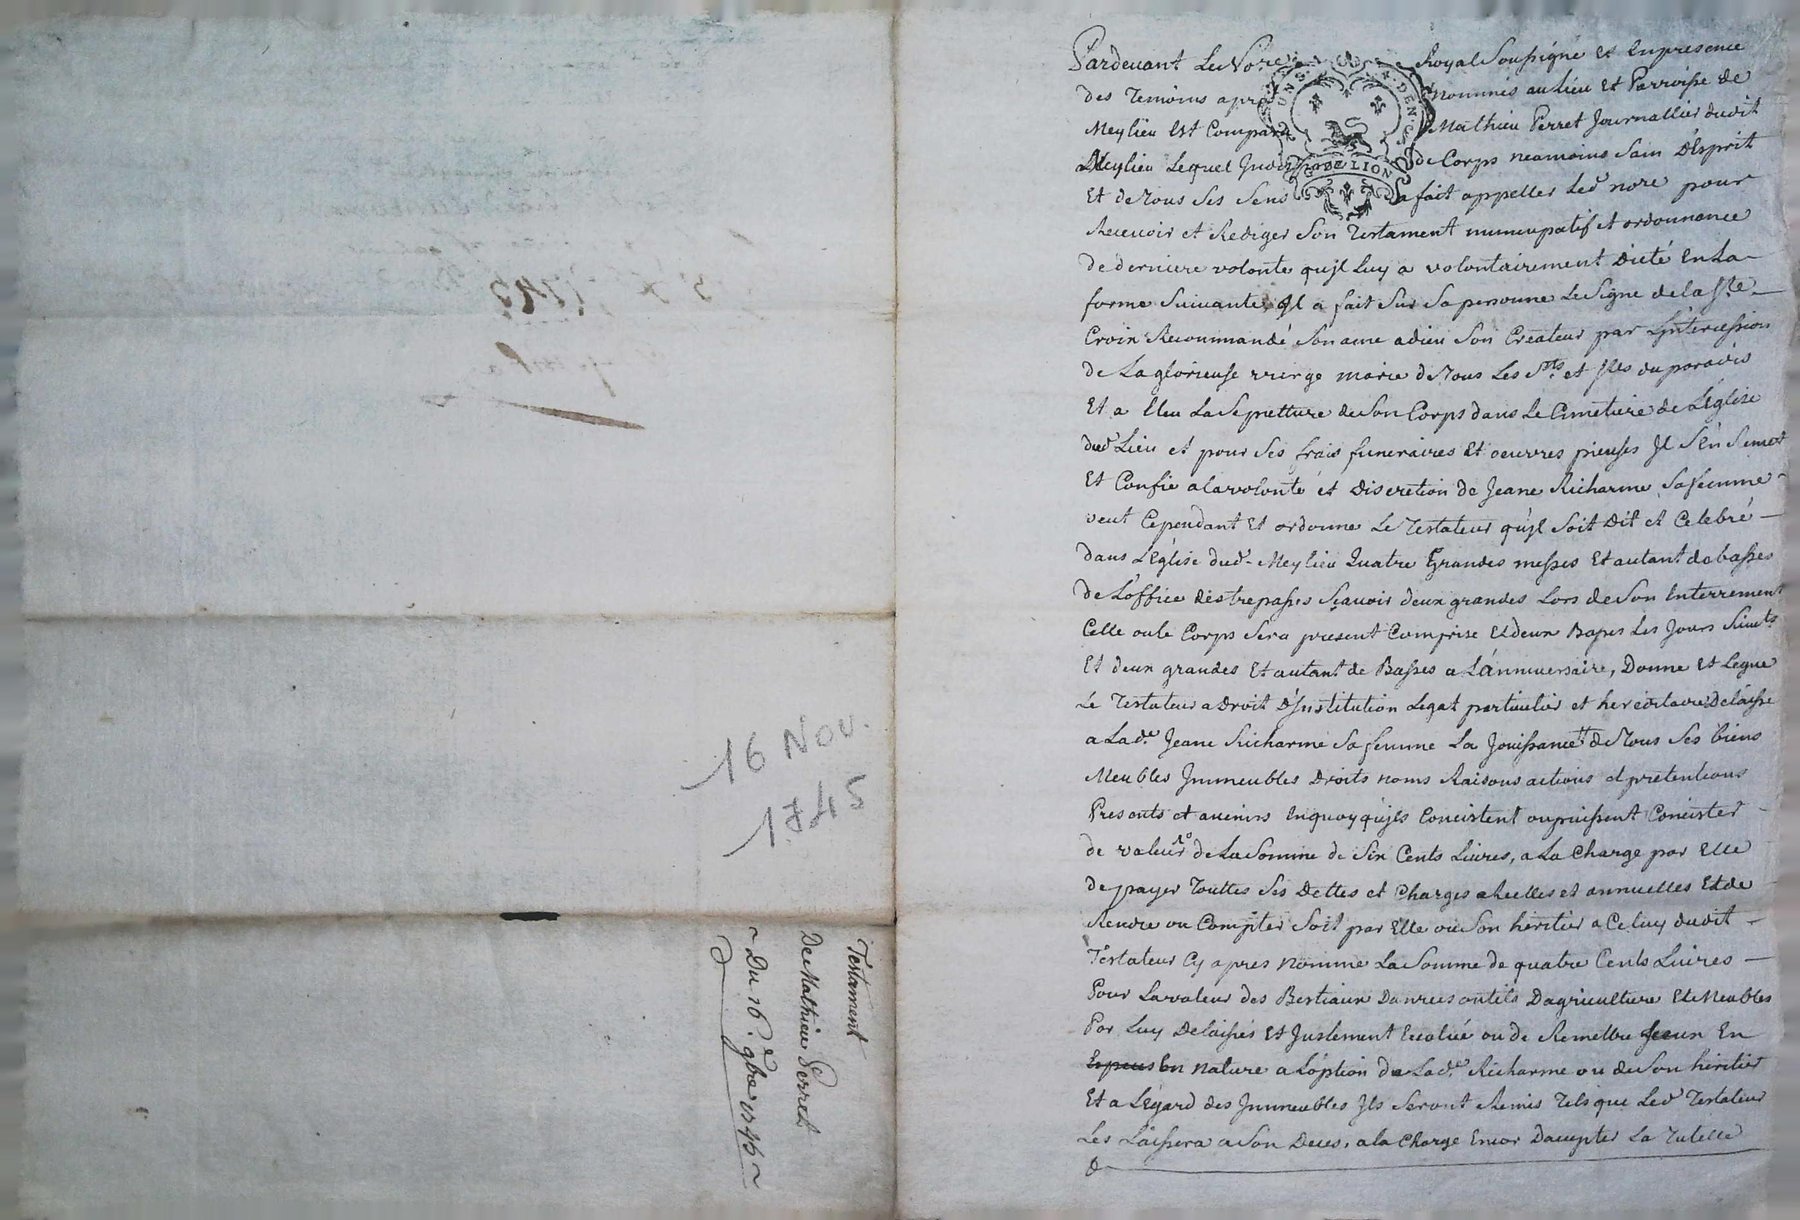 16 Nov.
1745
Testament
De Mathieu Perret
Du 16.e 9bre 1745
Pardevant Le Nore Royal Soussigné Et En presence
des Temoins apres nommés au Lieu Et Parroisse de
Meylieu Est Comparu Mathieu Perret Journallier dudit
Meylieu Lequel de Corps neamoins Sain D'Esprit
Et de Tous Ses Sens a fait appeller Led nore pour
Recevoir et Rediger Son Testament nuncupatif et ordonnance
de derniere volonté qu'jl Luy a volontairement Dicté En La
forme Suivante, Jl a fait Sur Sa personne Le Signe de la Ste
Croix Recommandé Son ame a dieu Son Createur par L'jntercession
de La glorieuse vierge marie de Tous Les Sts et Stes du paradis
Et a Elu La Sepulture de Son Corps dans Le Cimetiere de L'Eglise
dud Lieu et pour Ses frais funeraires Et oeuvres pieuses Jl S'En Remet
Et Confie a la volonté et Discretion de Jeane Richarme Sa femme
veut Cependant Et ordonne Le Testateur qu'jl Soit Dit et Celebré
dans L'Eglise dud. Meylieu Quatre Grandes messes Et autant de basses
de L'office des trepassés Sçavoir deux grandes Lors de Son Enterrement
Celle ou le Corps Sera present Comprise Et deux Basses Les Jours Suivts
Et deux grandes Et autant de Basses a L'anniversaire, Donne Et Legue
Le Testateur a Droit D'Jnstitution Legat particulier et hereditaire Delaisse
a Lade Jeane Richarme Sa femme La Jouissance de Tous Ses biens
Meubles Jmmeubles Droits noms Raisons actions et pretentions
Presents et avenirs En quoy qu'jls Concistent ou puissent Concister
de valeur de La Somme de Six Cents Livres, a La Charge par Elle
de payer Touttes Ses Dettes et Charges Reelles et annuelles Et de
Rendre ou Compter Soit par Elle ou Son heritier a Celuy dudit
Testateur Cy apres nommé La Somme de quatre Cents Livres
Pour La valeur des Bestiaux Danrees outils D'agriculture Et Meubles
Par Luy Delaissés Et Justement Evalué ou de Remettre Jceux En
En nature a L'option de Lade Richarme ou de Son heritier
Et a L'Egard des Jmmeubles Jls Seront Remis Tels que Led Testateur
Les Laissera a Son Deces, a la Charge Encor D'accepter La Tutelle